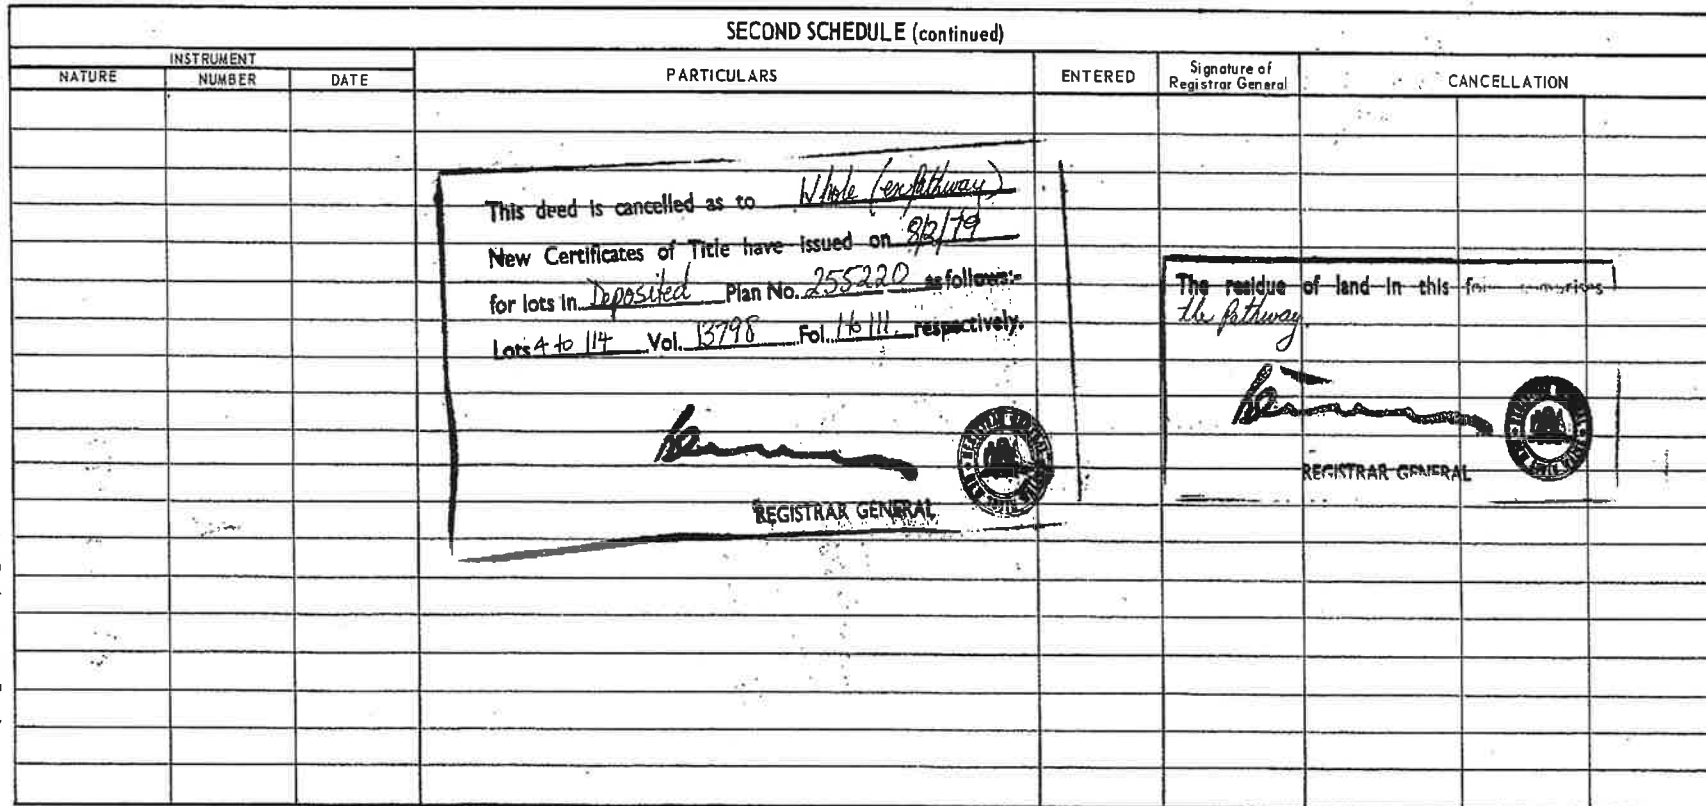 SECOND SCHEDULE (continued)
INSTRUMENT
NATURE NUMBER DATE PARTICULARS ENTERED Signature of Registrar General CANCELLATION
This deed is cancelled as to Whole (ex Pathway)
New Certificates of Title have issued on 8/2/79
for lots in Deposited Plan No. 255220 as follows:-
Lots 4 to 114 Vol. 13798 Fol. 1 to 111 respectively.
REGISTRAR GENERAL
The residue of land in this folio comprises
the Pathway.
REGISTRAR GENERAL